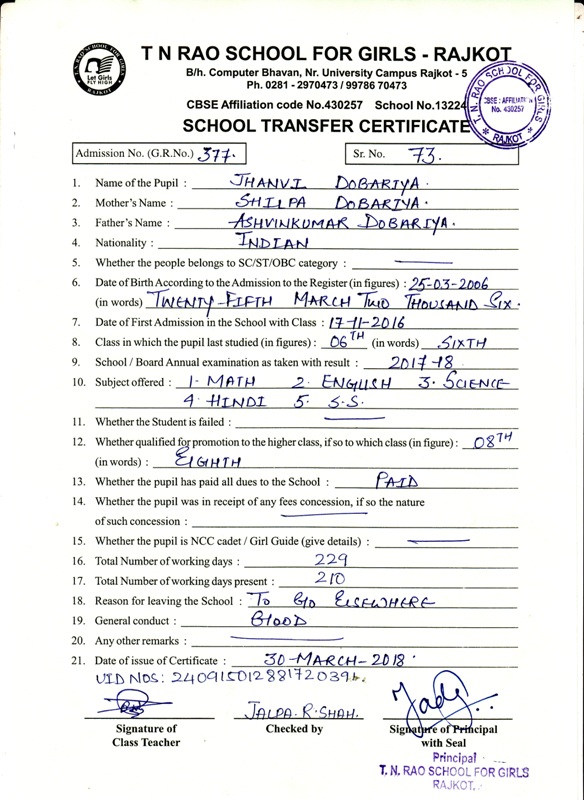 T N RAO SCHOOL FOR GIRLS
Let Girls
FLY HIGH
RAJKOT
T N RAO SCHOOL FOR GIRLS - RAJKOT
B/h. Computer Bhavan, Nr. University Campus Rajkot - 5
Ph. 0281 - 2970473 / 99786 70473
CBSE Affiliation code No.430257 School No.13224
T. N. RAO SCHOOL FOR GIRLS
CBSE : AFFILIATION
No. 430257
RAJKOT
SCHOOL TRANSFER CERTIFICATE
Admission No. (G.R.No.) 377. Sr. No. 73.
1. Name of the Pupil : JHANVI DOBARIYA.
2. Mother's Name : SHILPA DOBARIYA.
3. Father's Name : ASHVINKUMAR DOBARIYA.
4. Nationality : INDIAN
5. Whether the people belongs to SC/ST/OBC category :
6. Date of Birth According to the Admission to the Register (in figures) : 25-03-2006
(in words) TWENTY-FIFTH MARCH TWO THOUSAND SIX.
7. Date of First Admission in the School with Class : 17-11-2016
8. Class in which the pupil last studied (in figures) : 06TH (in words) SIXTH
9. School / Board Annual examination as taken with result : 2017-18
10. Subject offered : 1. MATH 2. ENGLISH 3. SCIENCE
4. HINDI 5. S.S.
11. Whether the Student is failed :
12. Whether qualified for promotion to the higher class, if so to which class (in figure) : 08TH
(in words) : EIGHTH
13. Whether the pupil has paid all dues to the School : PAID
14. Whether the pupil was in receipt of any fees concession, if so the nature
of such concession :
15. Whether the pupil is NCC cadet / Girl Guide (give details) :
16. Total Number of working days : 229
17. Total Number of working days present : 210
18. Reason for leaving the School : TO GO ELSEWHERE
19. General conduct : GOOD
20. Any other remarks :
21. Date of issue of Certificate : 30-MARCH-2018.
UID NOS: 240915012881720396.
JALPA.R.SHAH.
Signature of Checked by Signature of Principal
Class Teacher with Seal
Principal
T. N. RAO SCHOOL FOR GIRLS
RAJKOT.